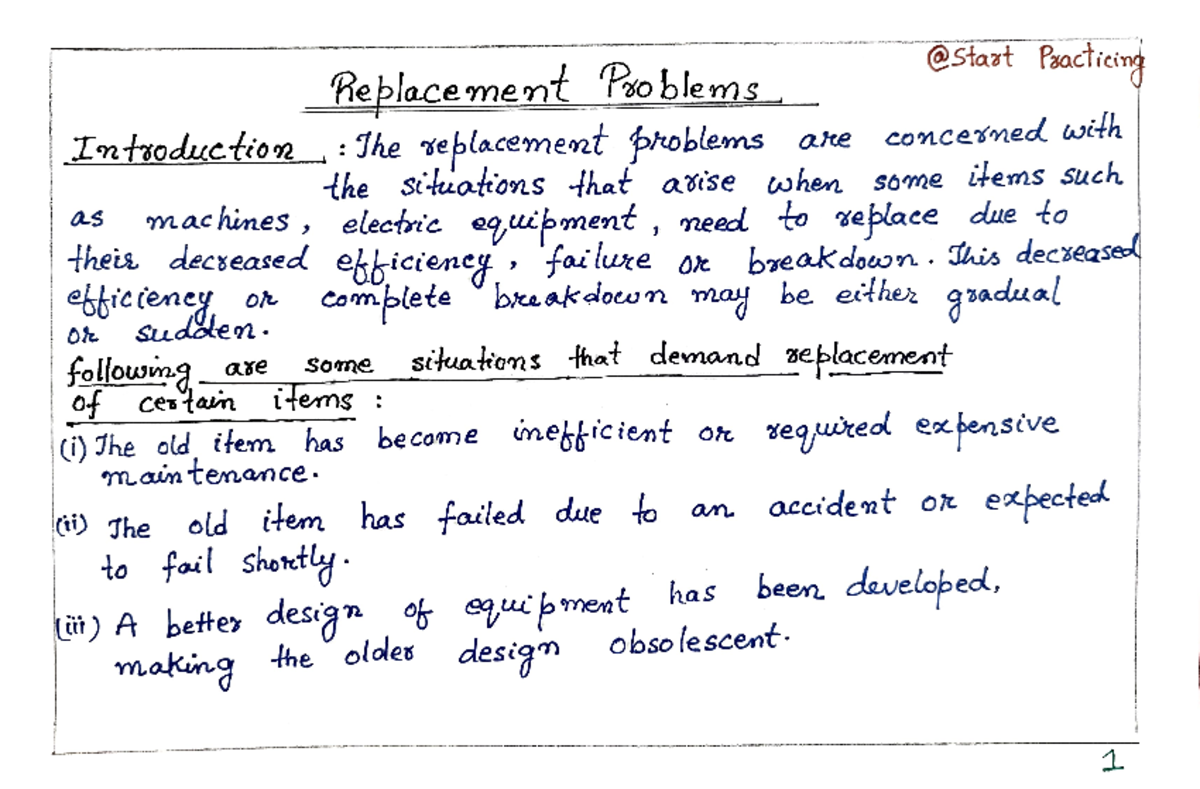 @Start Practicing
Replacement Problems
Introduction : The replacement problems are concerned with
the situations that arise when some items such
as machines, electric equipment, need to replace due to
their decreased efficiency, failure or breakdown. This decreased
efficiency or complete breakdown may be either gradual
or sudden.
following are some situations that demand replacement
of certain items :
(i) The old item has become inefficient or required expensive
maintenance.
(ii) The old item has failed due to an accident or expected
to fail shortly.
(iii) A better design of equipment has been developed,
making the older design obsolescent.
1